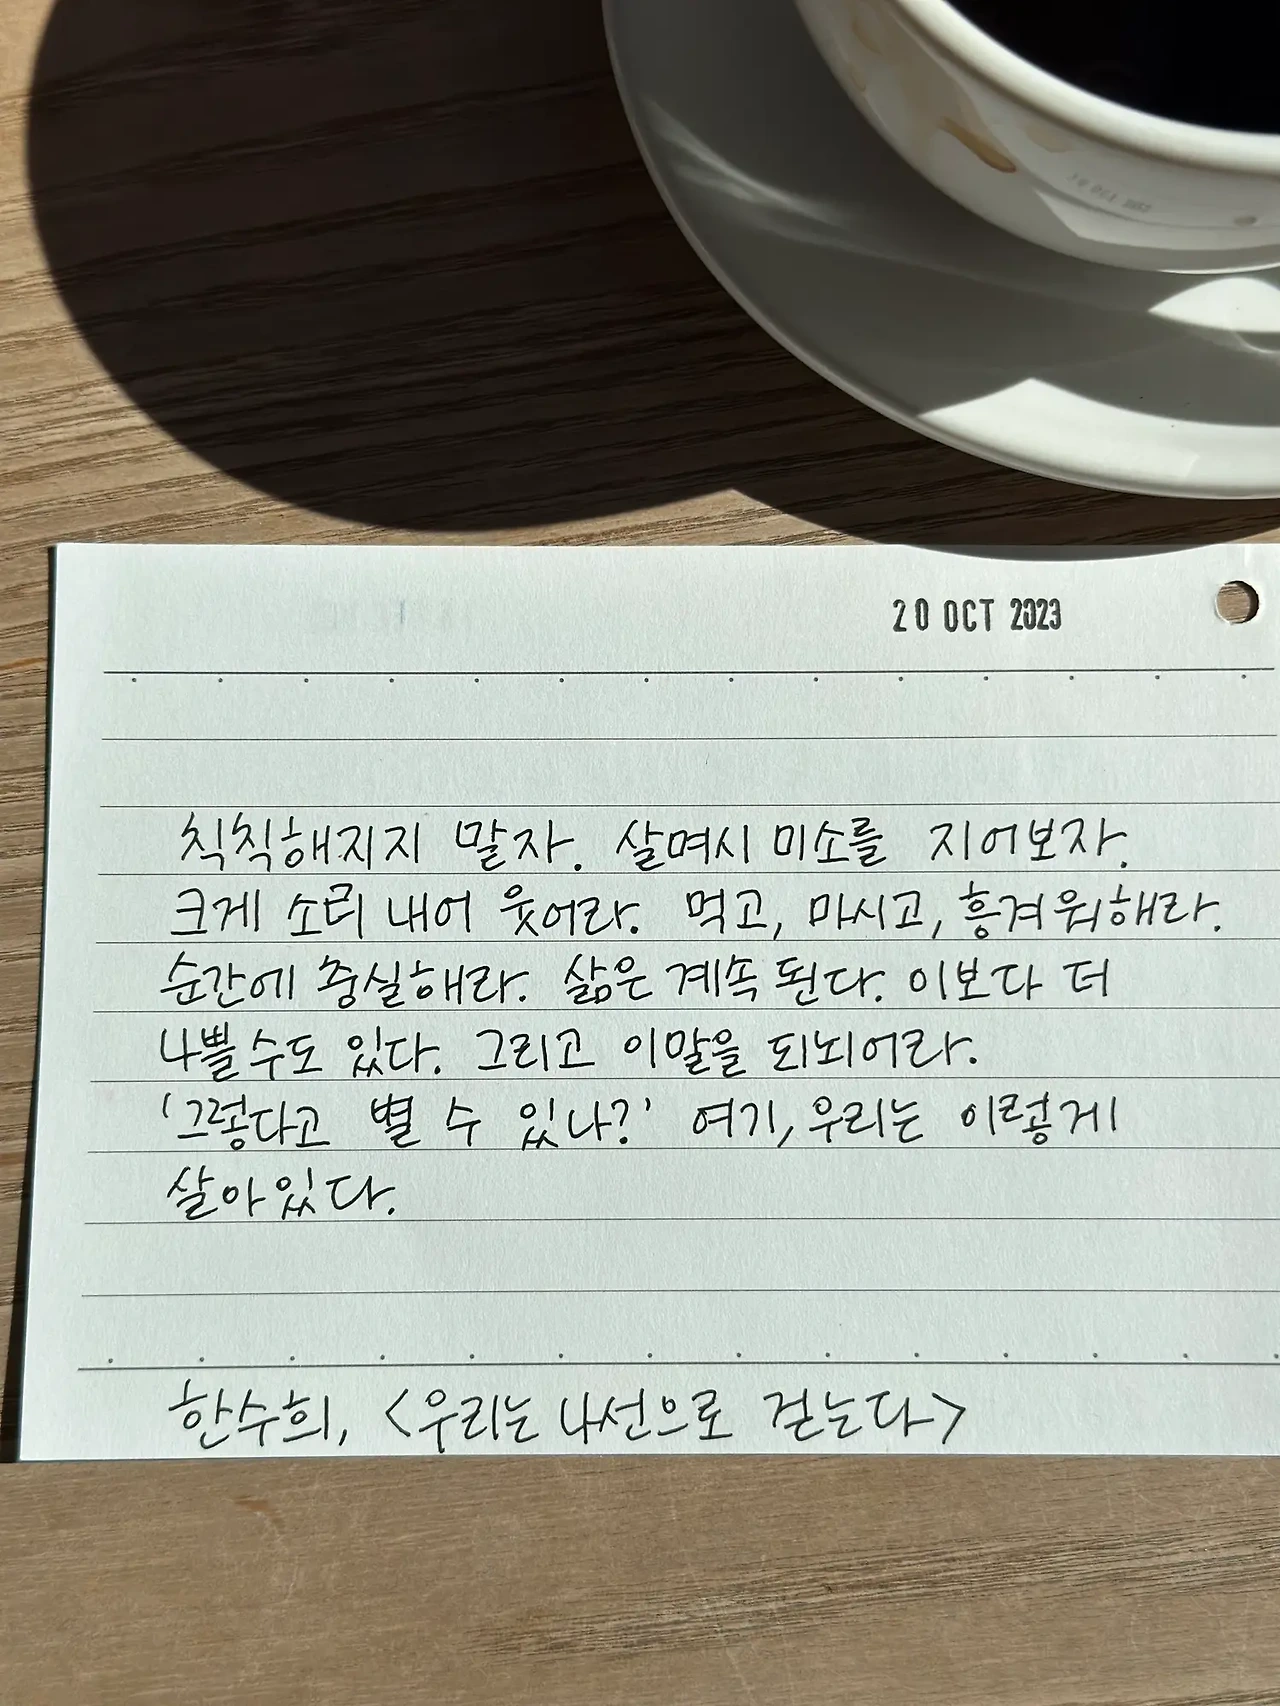 20 OCT 2023
칙칙해지지 말자. 살며시 미소를 지어보자.
크게 소리 내어 웃어라. 먹고, 마시고, 흥겨워해라.
순간에 충실해라. 삶은 계속 된다. 이보다 더
나쁠 수도 있다. 그리고 이말을 되뇌어라.
'그렇다고 별 수 있나?' 여기, 우리는 이렇게
살아있다.
한수희, <우리는 나선으로 걷는다>